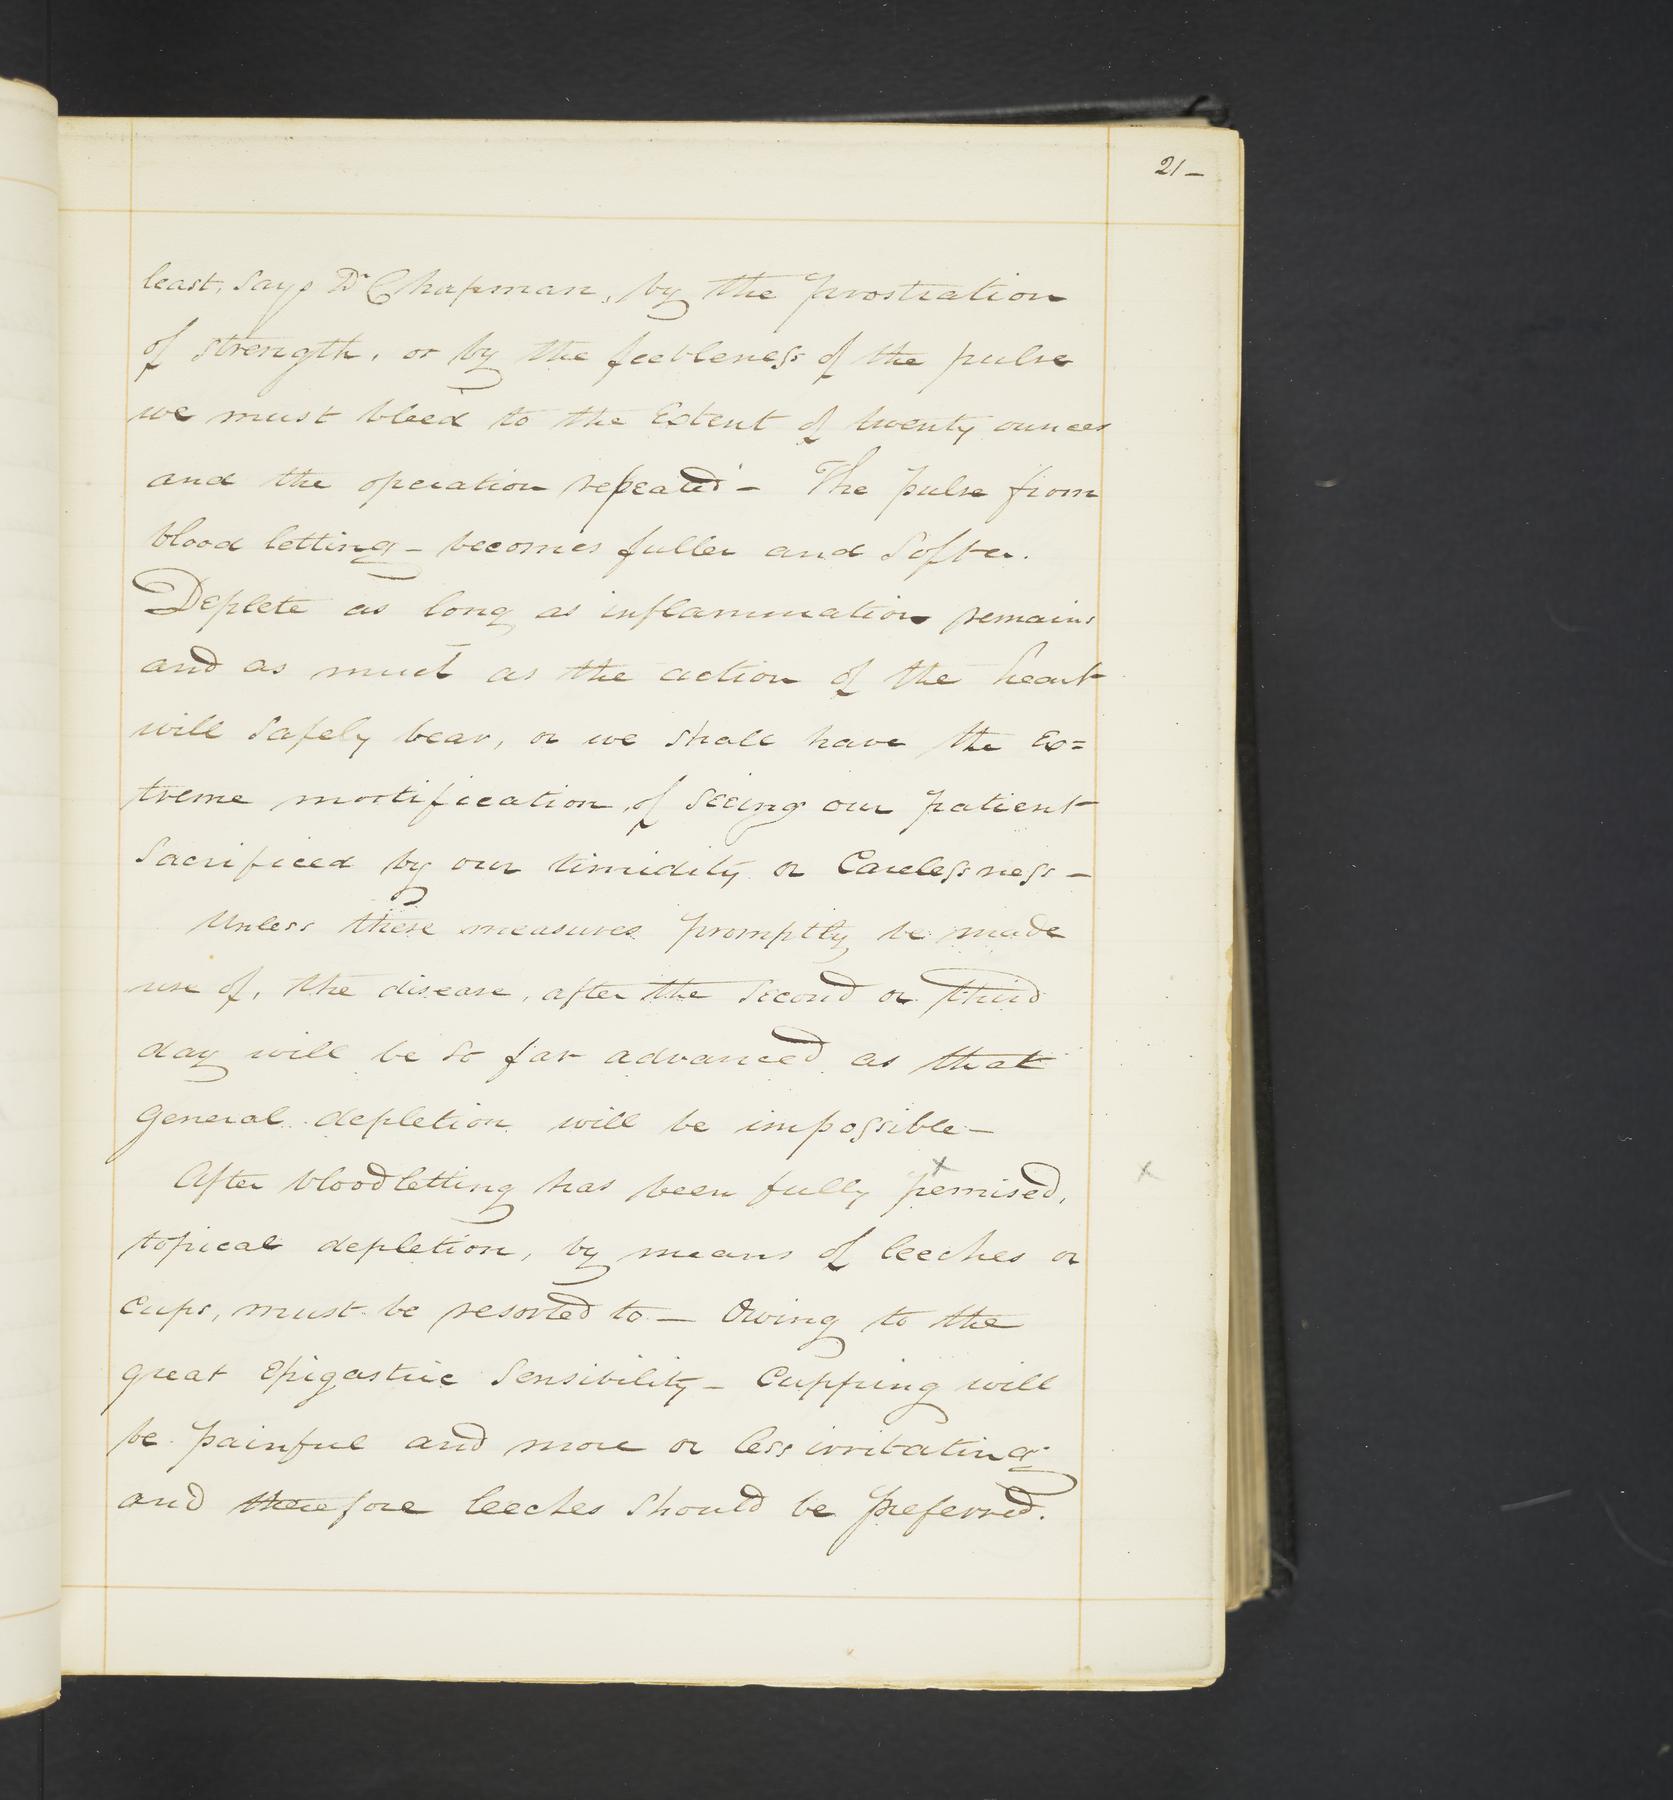 21 –
least, says Dr Chapman, by the prostration
of strength, or by the feebleness of the pulse
we must bleed to the Extent of twenty ounces
and the operation repeated – The pulse from
blood letting – becomes fuller and Softer.
Deplete as long as inflammation remains
and as much as the action of the heart
will Safely bear, or we shall have the Ex=
treme mortification, of Seeing our patient
Sacrificed by our timidity or Carelessness –
Unless these measures promptly be made
use of, the disease, after the Second or third
day will be so far advanced as that
General depletion will be impossible –
x
After bloodletting has been fully pemised, x
topical depletion, by means of leeches or
cups, must be resorted to – Owing to the
great Epigastric Sensibility – Cupping will
be painful and more or less irritating
and therefore leeches Should be preferred.